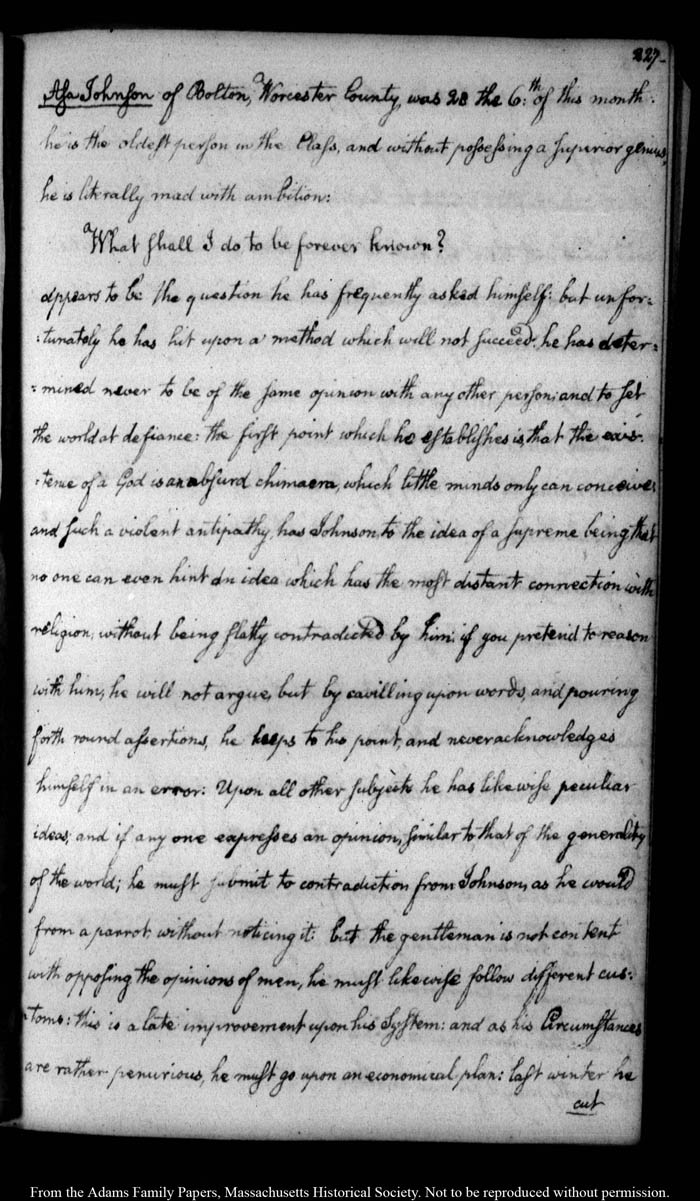 227.
Asa Johnson of Bolton, Worcester County, was 28 the 6:th of this month:
he is the oldest person in the Class, and without possessing a superior genius,
he is literally mad with ambition:
"What shall I do to be forever known?
appears to be the question he has frequently asked himself: but unfor=
=tunately he has hit upon a method which will not succeed. he has deter=
=mined never to be of the same opinion with any other person; and to set
the world at defiance: the first point which he establishes is, that the exis-
=tence of a God is an absurd chimaera, which little minds only can conceive;
and such a violent antipathy, has Johnson to the idea of a supreme being that
no one can even hint an idea which has the most distant connection with
religion, without being flatly contradicted by him: if you pretend to reason
with him, he will not argue, but by cavilling upon words, and pouring
forth round assertions, he keeps to his point, and never acknowledges
himself in an error: Upon all other subjects he has likewise peculiar
ideas; and if any one expresses an opinion, similar to that of the generality
of the world; he must submit to contradiction from Johnson, as he would
from a parrot without noticing it: but the gentleman is not content
with opposing the opinions of men, he must likewise follow different cus=
=toms: this is a late improvement upon his System: and as his Circumstances
are rather penurious, he must go upon an economical plan: last winter he
cut
From the Adams Family Papers, Massachusetts Historical Society. Not to be reproduced without permission.